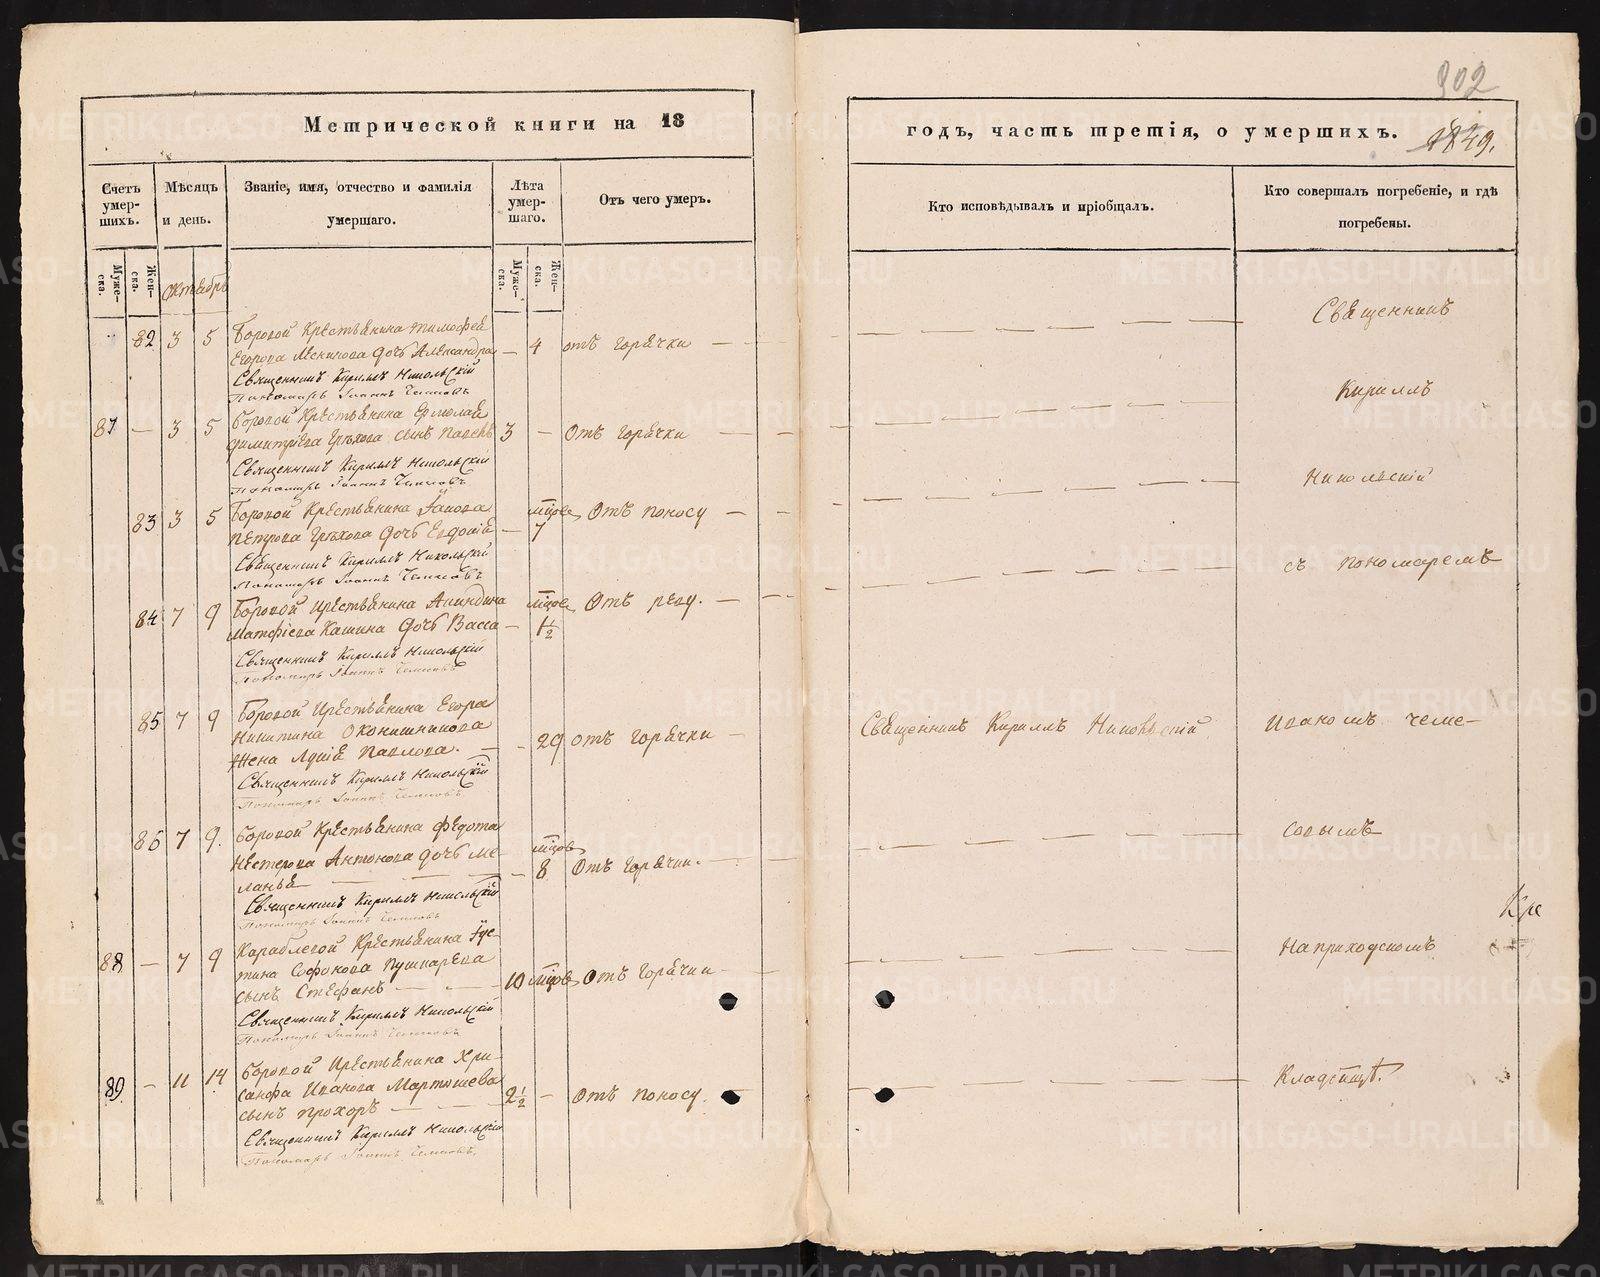 302
Метрической книги на 18
годъ, часть третія, о умершихъ. 1849.
Счетъ умер-шихъ.
Мѣсяцъ и день.
Званіе, имя, отчество и фамилія умершаго.
Лѣта умер-шаго.
Отъ чего умеръ.
Кто исповѣдывалъ и пріобщалъ.
Кто совершалъ погребеніе, и гдѣ погребены.
Муже-ска.
Жен-ска.
Октябрь
Муже-ска.
Жен-ска.
82 3 5 Боровой Крестьянина Тимофея
Егорова дочь Александра — 4 отъ горячки —
Священникъ Кириллъ Никольскій
Пономарь Іоаннъ
87 — 3 5 Боровой Крестьянина Ермолая
Димитріева Грѣхова сынъ Павелъ 3 — Отъ горячки —
Священникъ Кириллъ Никольскій
Пономарь Іоаннъ
83 3 5 Боровой Крестьянина Іакова
Петрова Грѣхова дочь Евдокія — мцовъ 7 Отъ поносу —
Священникъ Кириллъ Никольскій
Пономарь Іоаннъ
84 7 9 Боровой Крестьянина Акиндина
Матфіева Кашина дочь Васса — мцовъ 1½ Отъ резу. —
Священникъ Кириллъ Никольскій
Пономарь Іоаннъ
85 7 9 Боровой Крестьянина Егора
Никитина Оконишникова
жена Лукія Павлова. — 29 отъ горячки —
Священникъ Кириллъ Никольскій
Пономарь Іоаннъ
86 7 9. Боровой Крестьянина Федота
Нестерова Антонова дочь Ме-
ланья — мцовъ 8 Отъ горячки.
Священникъ Кириллъ Никольскій
Пономарь Іоаннъ
88 — 7 9 Караблевой Крестьянина Іус-
тина Софонова Пушкарева
сынъ Стефанъ — 10 мцовъ Отъ горячки —
Священникъ Кириллъ Никольскій
Пономарь Іоаннъ
89 — 11 14 Боровой Крестьянина Хри-
санфа Иванова Мартюшева
сынъ Прохоръ — 2½ — Отъ поносу.
Священникъ Кириллъ Никольскій
Пономарь Іоаннъ
Священникъ Кириллъ Никольскій
Священникъ
Кириллъ
Никольскій
съ пономаремъ
Иваномъ Чеме-
совымъ
На приходскомъ
Кладбищѣ.
Кре
METRIKI.GASO-URAL.RU